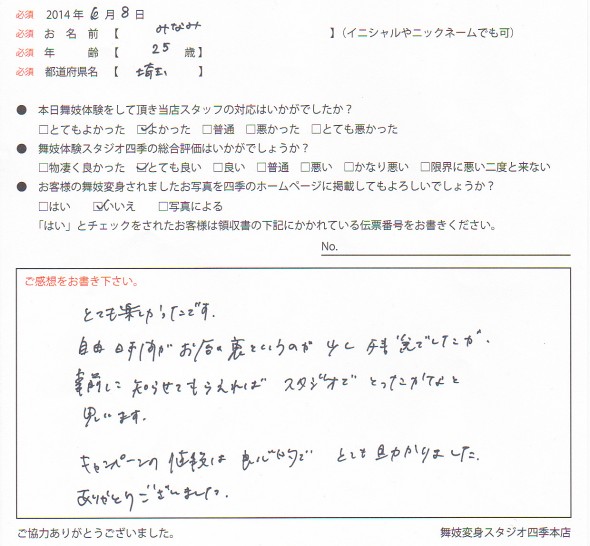 必須 2014 年 6 月 8 日
必須 お 名 前 【 みなみ 】(イニシャルやニックネームでも可)
必須 年 齢 【 25 歳】
必須 都道府県名 【 埼玉 】
● 本日舞妓体験をして頂き当店スタッフの対応はいかがでしたか？
□とてもよかった ☑よかった □普通 □悪かった □とても悪かった
● 舞妓体験スタジオ四季の総合評価はいかがでしょうか？
□物凄く良かった ☑とても良い □良い □普通 □悪い □かなり悪い □限界に悪い二度と来ない
● お客様の舞妓変身されましたお写真を四季のホームページに掲載してもよろしいでしょうか？
□はい ☑いいえ □写真による
「はい」とチェックをされたお客様は領収書の下記にかかれている伝票番号をお書きください。
No.
ご感想をお書き下さい。
とても楽しかったです.
自由 がお店の裏というのが 少し でしたが.
事前に 知らせてもらえれば スタジオで とったかなと
思います.
キャンペーンの 値段は 良心的で とても助かりました.
ありがとうございました.
ご協力ありがとうございました。
舞妓変身スタジオ四季本店